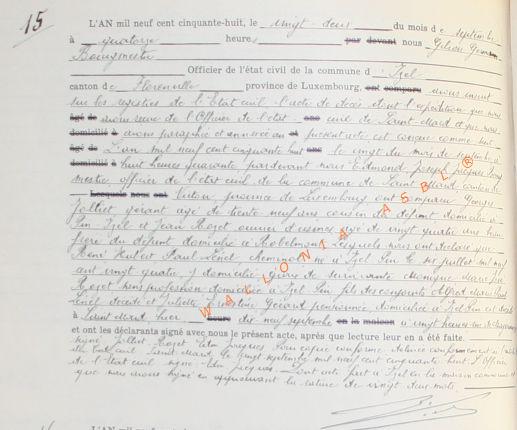 15
L'AN mil neuf cent cinquante-huit, le vingt-deux du mois de septembre
à quatorze heures par devant nous Gilson Germain
Bourgmestre Officier de l'état civil de la commune d'Izel
canton de Florenville province de Luxembourg, ont comparu avons inscrit
sur les registres de l'Etat civil l'acte de décès dont l'expédition que nous
âgé de avons reçue de l'Officier de l'état civil de Saint Mard et que nous
domicilié à avons paraphée et annexée au présent acte est conçue comme suit
âgé de L'an mil neuf cent cinquante huit le vingt du mois de septembre à
domicilié à huit heures quarante par devant nous Edmond Joseph Jacques bourg
mestre officier de l'état civil de la commune de Saint Mard canton de
Lesquels nous ont Virton province de Luxembourg ont comparu Georges
Jolliet gérant âgé de trente neuf ans cousin du défunt domicilié à
Pin Izel et Jean Rozet ouvrier d'usines âgé de vingt quatre ans beau
frère du défunt domicilié à Robelmont lesquels nous ont déclaré que
René Hubert Paul Lénel cheminot né à Izel Pin le six juillet mil neuf
cent vingt quatre y domicilié époux de survivante Monique Marie
Rozet sans profession domiciliée à Izel Pin fils des conjoints Alfred
Lénel décédé et Juliette Ernestine Gérard pensionnée domiciliée à Izel Pin est décédé
à Saint Mard hier heure dix neuf septembre en la maison à vingt heures
et ont les déclarants signé avec nous le présent acte, après que lecture leur en a été faite.
signé Jolliet Rozet Edm Jacques Pour copie conforme délivrée conformément à
Saint Mard le vingt septembre mil neuf cent cinquante huit L'Officier
de l'état civil signé Edm Jacques. Dont acte fait à Izel en la maison communale et
que nous avons signé en approuvant la rature de vingt deux mots
WALLONIA ASBL ®
L'AN mil neuf cent